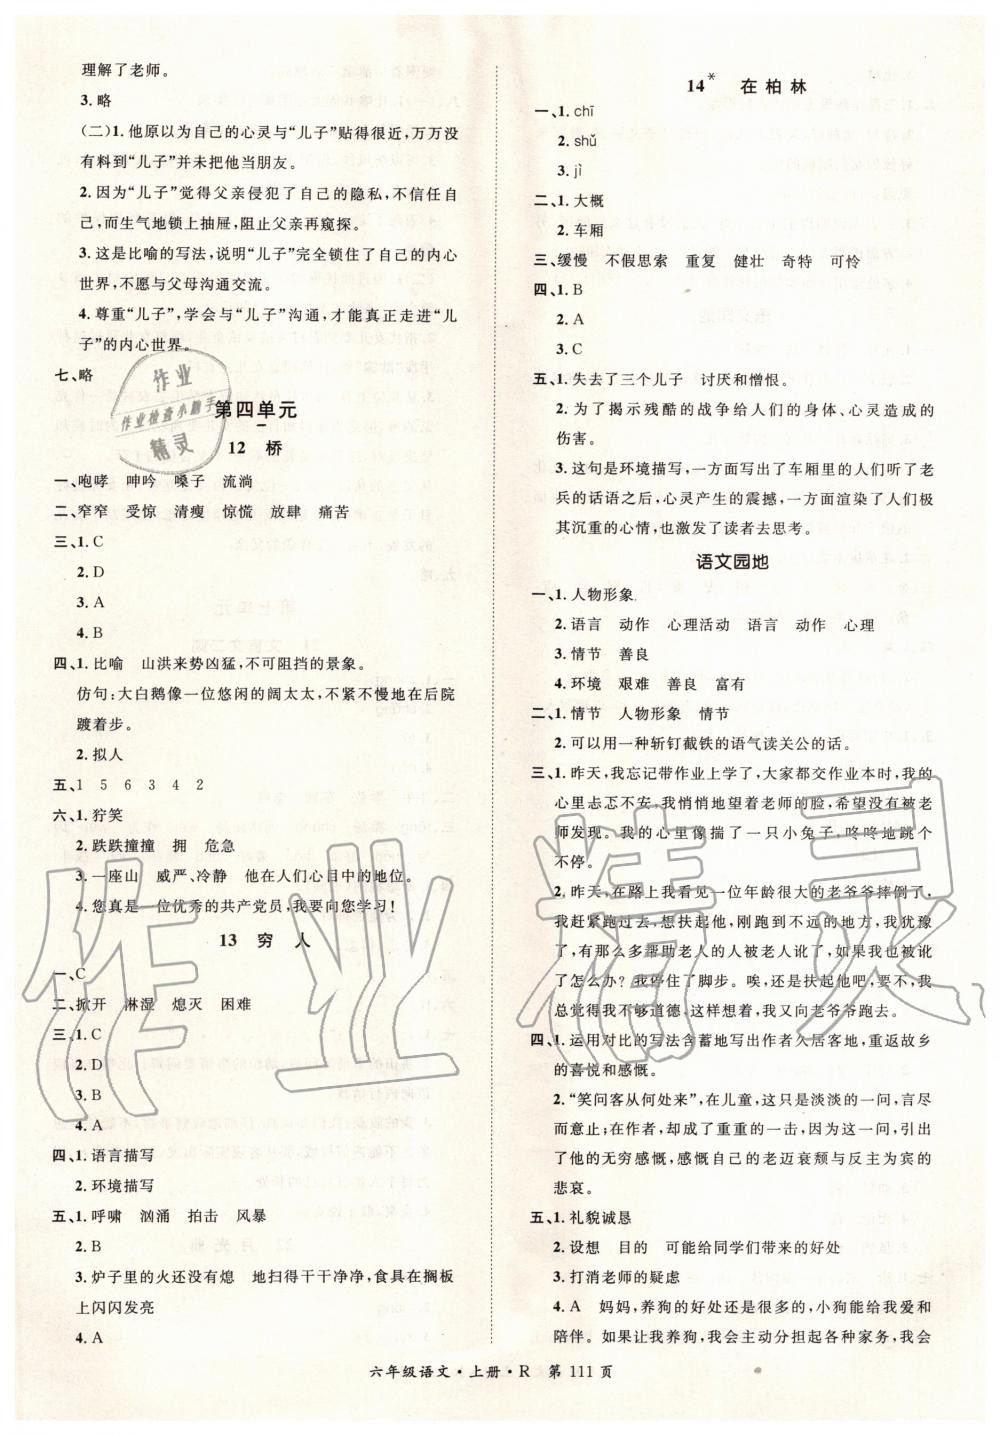 理解了老师。
3.略
(二)1.他原以为自己的心灵与“儿子”贴得很近,万万没
有料到“儿子”并未把他当朋友。
2.因为“儿子”觉得父亲侵犯了自己的隐私,不信任自
己,而生气地锁上抽屉,阻止父亲再窥探。
3.这是比喻的写法,说明“儿子”完全锁住了自己的内心
世界,不愿与父母沟通交流。
4.尊重“儿子”,学会与“儿子”沟通,才能真正走进“儿
子”的内心世界。
七、略
第四单元
12 桥
一、咆哮 呻吟 嗓子 流淌
二、窄窄 受惊 清瘦 惊慌 放肆 痛苦
三、1.C
2.D
3.A
4.B
四、1.比喻 山洪来势凶猛,不可阻挡的景象。
仿句:大白鹅像一位悠闲的阔太太,不紧不慢地在后院
踱着步。
2.拟人
五、1 5 6 3 4 2
六、1.狞笑
2.跌跌撞撞 拥 危急
3.一座山 威严、冷静 他在人们心目中的地位。
4.您真是一位优秀的共产党员,我要向您学习!
13 穷人
一、C
二、掀开 淋湿 熄灭 困难
三、1.C
2.D
3.B
4.A
四、1.语言描写
2.环境描写
五、1.呼啸 汹涌 拍击 风暴
2.B
3.炉子里的火还没有熄 地扫得干干净净,食具在搁板
上闪闪发亮
4.A
14* 在柏林
一、1.chī
2.shǔ
3.jì
二、1.大概
2.车厢
三、缓慢 不假思索 重复 健壮 奇特 可怜
四、1.B
2.A
3.C
五、1.失去了三个儿子 讨厌和憎恨。
2.为了揭示残酷的战争给人们的身体、心灵造成的
伤害。
3.这句是环境描写,一方面写出了车厢里的人们听了老
兵的话语之后,心灵产生的震撼,一方面渲染了人们极
其沉重的心情,也激发了读者去思考。
语文园地
一、1.人物形象
2.语言 动作 心理活动 语言 动作 心理
3.情节 善良
4.环境 艰难 善良 富有
二、1.情节 人物形象 情节
2.可以用一种斩钉截铁的语气读关公的话。
三、1.昨天,我忘记带作业上学了,大家都交作业本时,我的
心里忐忑不安。我悄悄地望着老师的脸,希望没有被老
师发现。我的心里像揣了一只小兔子,咚咚地跳个
不停。
2.昨天,在路上我看见一位年龄很大的老爷爷摔倒了,
我赶紧跑过去,想扶起他,刚跑到不远的地方,我犹豫
了,有那么多帮助老人的人被老人讹了,我如果也被讹
了怎么办?我停住了脚步。唉,还是扶起他吧,要不,我
总觉得我不够道德。这样想着,我向老爷爷跑去。
四、1.运用对比的写法含蓄地写出作者久居客地,重返故乡
的喜悦和感慨。
2.“笑问客从何处来”,在儿童,这只是淡淡的一问,言尽
而意止;在作者,却成了重重的一击,因为这一问,引出
了他的无穷感慨,感慨自己的老迈衰颓与反主为宾的
悲哀。
五、1.礼貌诚恳
2.设想 目的 可能给同学们带来的好处
3.打消老师的疑虑
4.A 妈妈,养狗的好处还是挺多的,小狗能给我爱和
陪伴。如果让我养狗,我会主动分担各种家务,我会
六年级语文·上册·R 第111页
作业
作业检查小助手
精灵
作业精灵